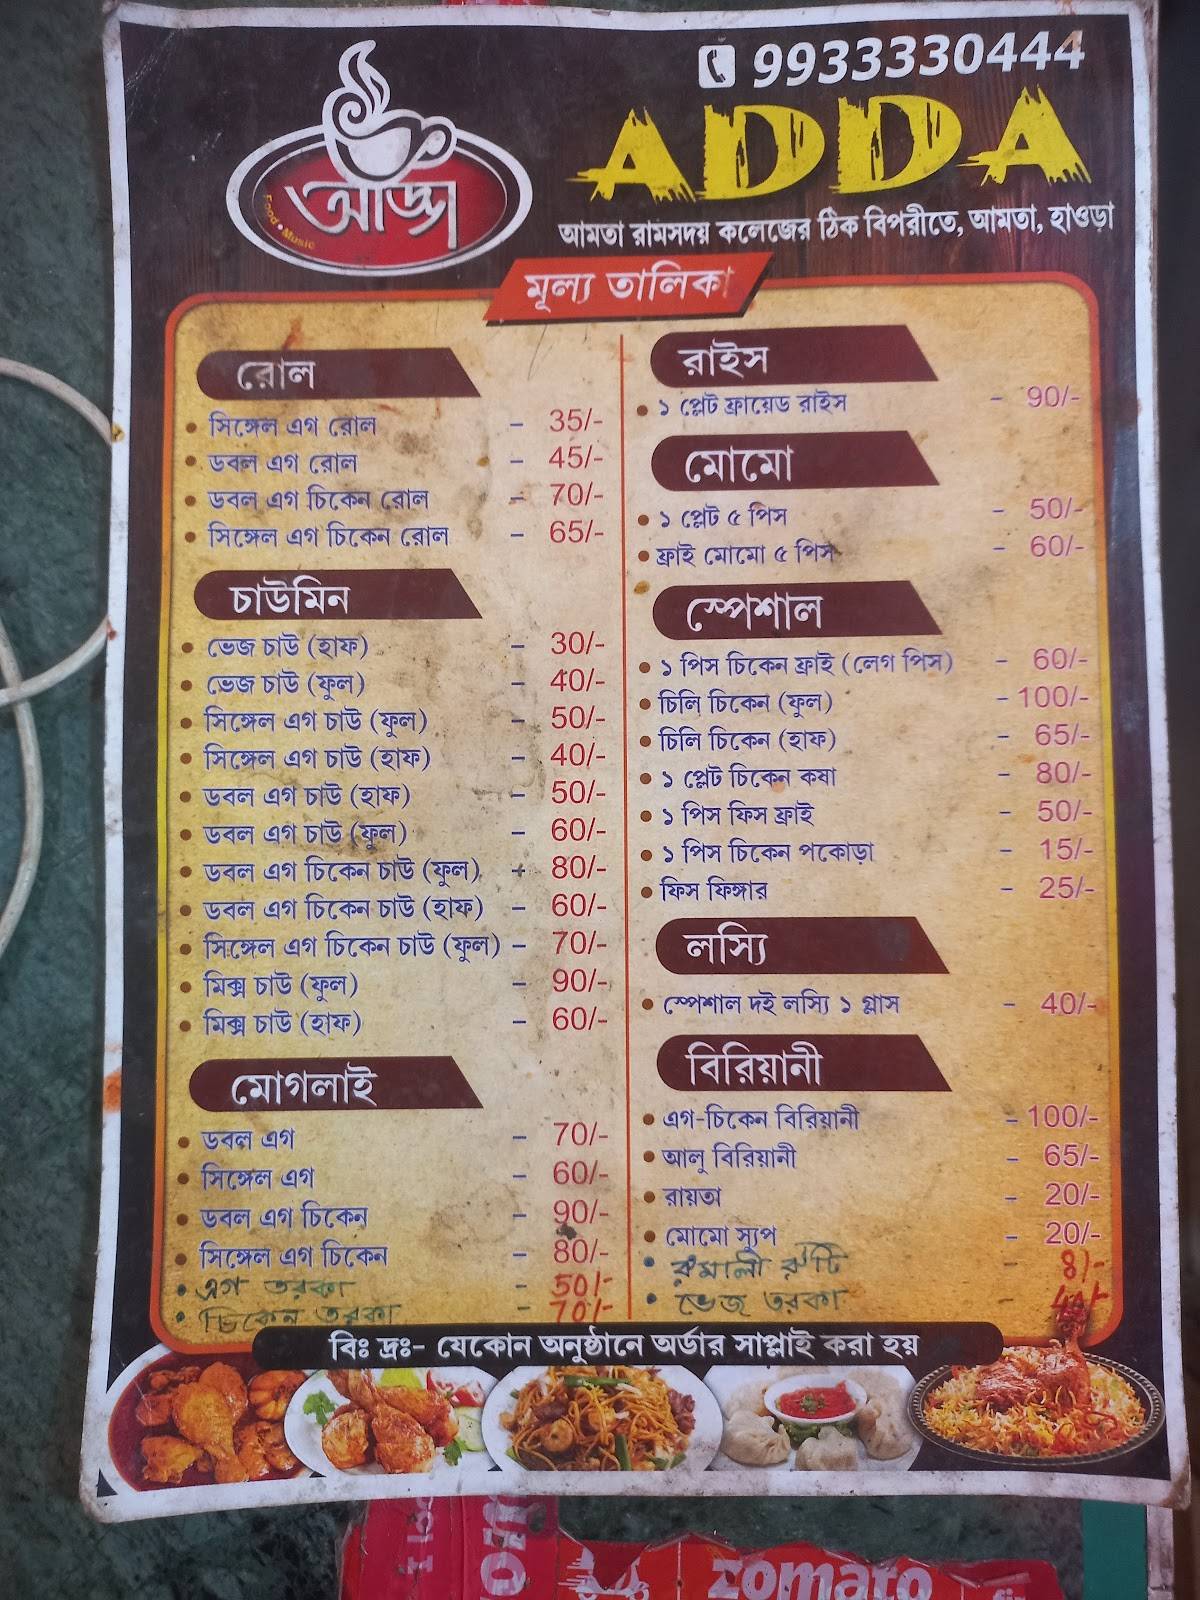 9933330444
ADDA
আড্ডা
Food • Music
আমতা রামসদয় কলেজের ঠিক বিপরীতে, আমতা, হাওড়া
মূল্য তালিকা
রোল
• সিঙ্গেল এগ রোল - 35/-
• ডবল এগ রোল - 45/-
• ডবল এগ চিকেন রোল - 70/-
• সিঙ্গেল এগ চিকেন রোল - 65/-
চাউমিন
• ভেজ চাউ (হাফ) - 30/-
• ভেজ চাউ (ফুল) - 40/-
• সিঙ্গেল এগ চাউ (ফুল) - 50/-
• সিঙ্গেল এগ চাউ (হাফ) - 40/-
• ডবল এগ চাউ (হাফ) - 50/-
• ডবল এগ চাউ (ফুল) - 60/-
• ডবল এগ চিকেন চাউ (ফুল) - 80/-
• ডবল এগ চিকেন চাউ (হাফ) - 60/-
• সিঙ্গেল এগ চিকেন চাউ (ফুল) - 70/-
• মিক্স চাউ (ফুল) - 90/-
• মিক্স চাউ (হাফ) - 60/-
মোগলাই
• ডবল এগ - 70/-
• সিঙ্গেল এগ - 60/-
• ডবল এগ চিকেন - 90/-
• সিঙ্গেল এগ চিকেন - 80/-
• এগ তরকা - 50/-
• চিকেন তরকা - 70/-
রাইস
• ১ প্লেট ফ্রায়েড রাইস - 90/-
মোমো
• ১ প্লেট ৫ পিস - 50/-
• ফ্রাই মোমো ৫ পিস - 60/-
স্পেশাল
• ১ পিস চিকেন ফ্রাই (লেগ পিস) - 60/-
• চিলি চিকেন (ফুল) - 100/-
• চিলি চিকেন (হাফ) - 65/-
• ১ প্লেট চিকেন কষা - 80/-
• ১ পিস ফিস ফ্রাই - 50/-
• ১ পিস চিকেন পকোড়া - 15/-
• ফিস ফিঙ্গার - 25/-
লস্যি
• স্পেশাল দই লস্যি ১ গ্লাস - 40/-
বিরিয়ানী
• এগ-চিকেন বিরিয়ানী - 100/-
• আলু বিরিয়ানী - 65/-
• রায়তা - 20/-
• মোমো স্যুপ - 20/-
• রুমালী রুটি - 8/-
• ভেজ তরকা - 40/-
বিঃ দ্রঃ- যেকোন অনুষ্ঠানে অর্ডার সাপ্লাই করা হয়
zomato